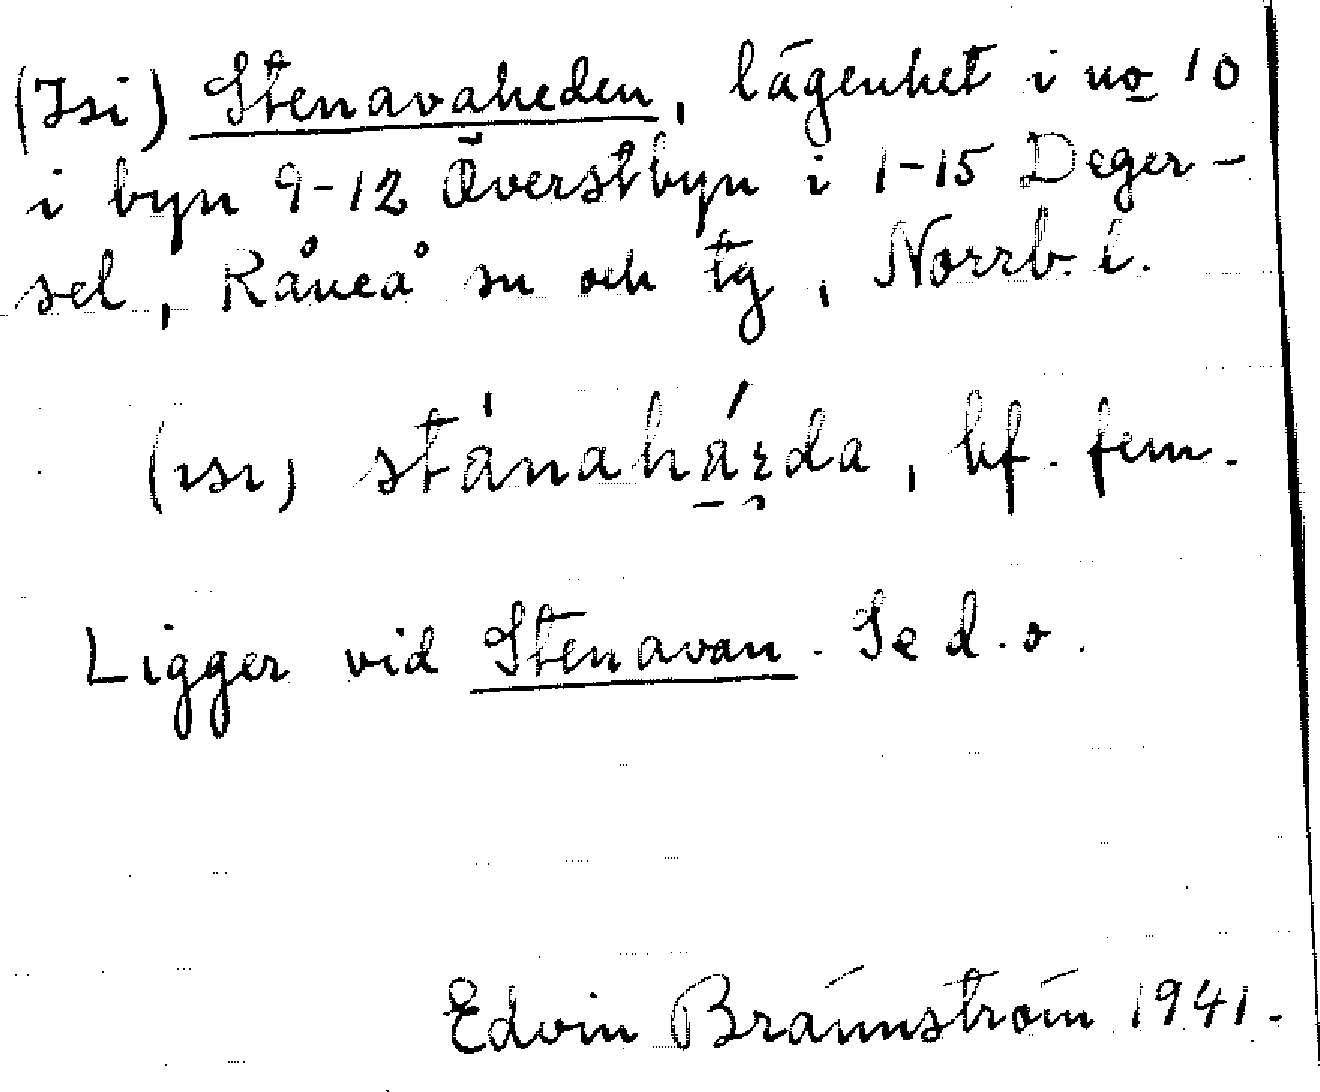 (Isi) Stenavaheden, lägenhet i no 10
i byn 9-12 Överstbyn i 1-15 Deger-
sel, Råneå sn och tg, Norrb. l.
(ısı) stánahárda, bf. fem.
Ligger vid Stenavan. Se d.o.
Edvin Brännström 1941.